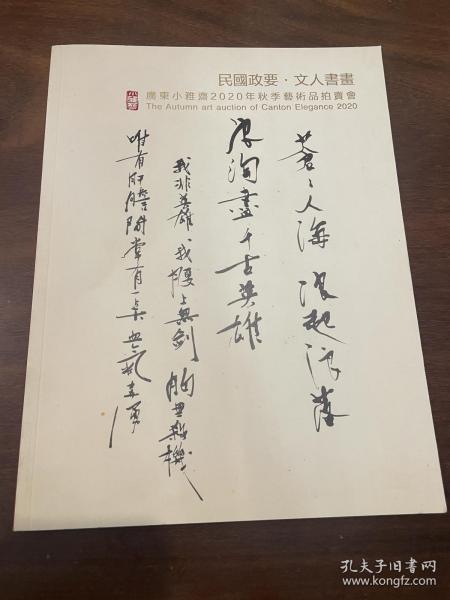 民國政要·文人書畫
小雅齋
廣東小雅齋2020年秋季藝術品拍賣會
The Autumn art auction of Canton Elegance 2020
蒼〻人海 浪起浪落
浪淘盡千古英雄
我非英雄 我腰上無劍 胸無殺機
唯有 時常有一點血氣
孔夫子旧书网
www.kongfz.com